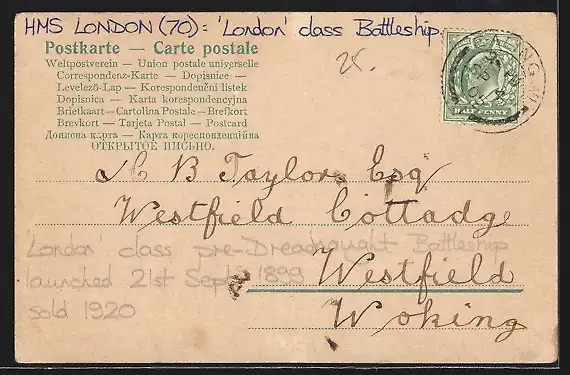 HMS LONDON (70) = 'London' class Battleship.
Postkarte — Carte postale
Weltpostverein — Union postale universelle
Correspondenz-Karte — Dopisnice —
Levelező-Lap — Korespondenční listek
Dopisnica — Karta korespondencyjna
Briefkaart — Cartolina Postale — Brefkort
Brevkort — Tarjeta Postal — Postcard
Дописна карта — Карта кореспонденційна
ОТКРЫТОЕ ПИСЬМО.
EALING
HALFPENNY
B Taylor Esq
Westfield Cottadge
'London' class pre-Dreadnaught Battleship
launched 21st Sept 1899
Westfield
sold 1920
Woking